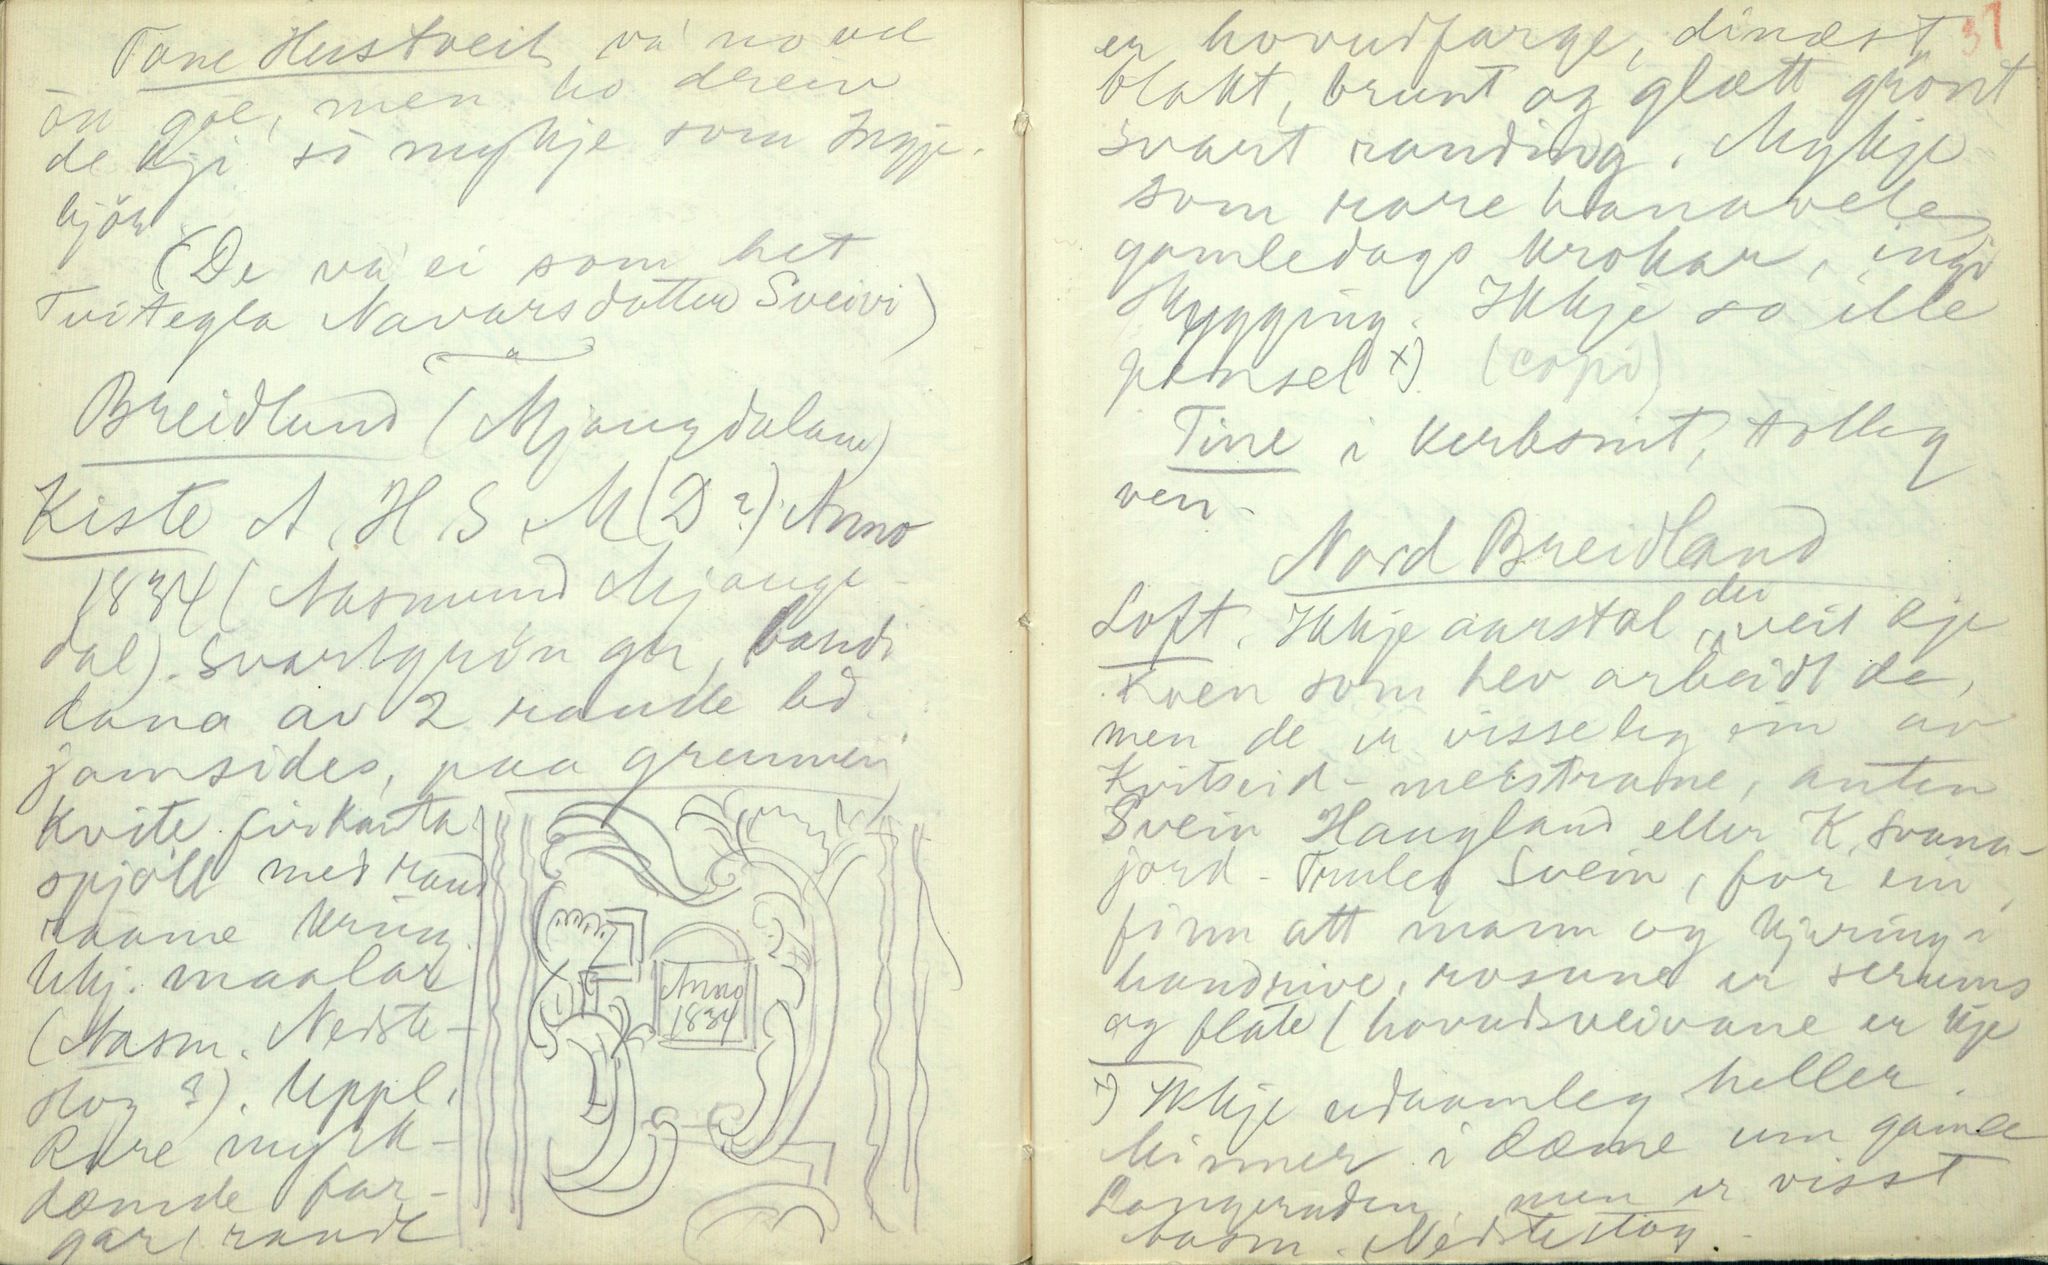 Tone Hustveit va no vel
òn goe, men ho dreiv
de kji so mykje som Ingje-
björ
(De va ei som het
Tvitegla Navarsdotter Sveivi)
Breidland (Mjaugdalane)
Kiste A H S M (D?) Anno
1834 (Aasmund Mjauge-
dal). Svartgrön gr, bandi
dana av 2 raude bd.
jamsides, paa grunnen
kvite firkanta
spjöll med raud
raame kring.
Ukj. maalar
(Aasm. Nedste-
stog ?). Uppl.
Rare myrk-
dæmde far-
gar, raudt
Anno
1834
31
er hovudfarge, dinæst
blakt, brunt og glætt grönt
svart randing. Mykje
som rare hanavele
gamledags krokar, ingi
skygging. Ikkje so ille
pensel x) (copi)
Tine i kerbsnit, tolleg
ven.
Nord Breidland
Loft. Ikkje aarstal, dei veit kje
kven som hev arbeidt de,
men de er visseleg ein av
Kvitseid-meistrane, anten
Svein Haugland eller K. Svana-
jord. Truleg Svein, for ein
finn att mann og kjæring i
handrive, rosune er serums
og flate (hovudsveivane er kje
x) Ikkje udaamleg heller.
Minner i dæme um gamle
men er visst
Aasm. Nedstestog.